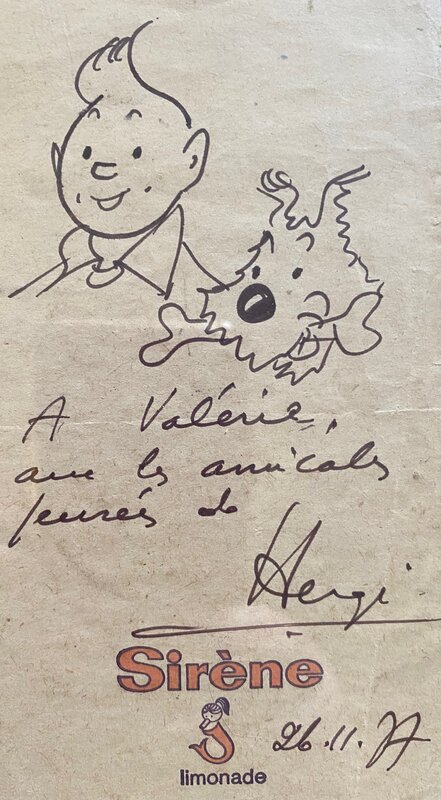 A Valérie,
avec les amicales
pensées de
Hergé
Sirène
26.11.77
limonade